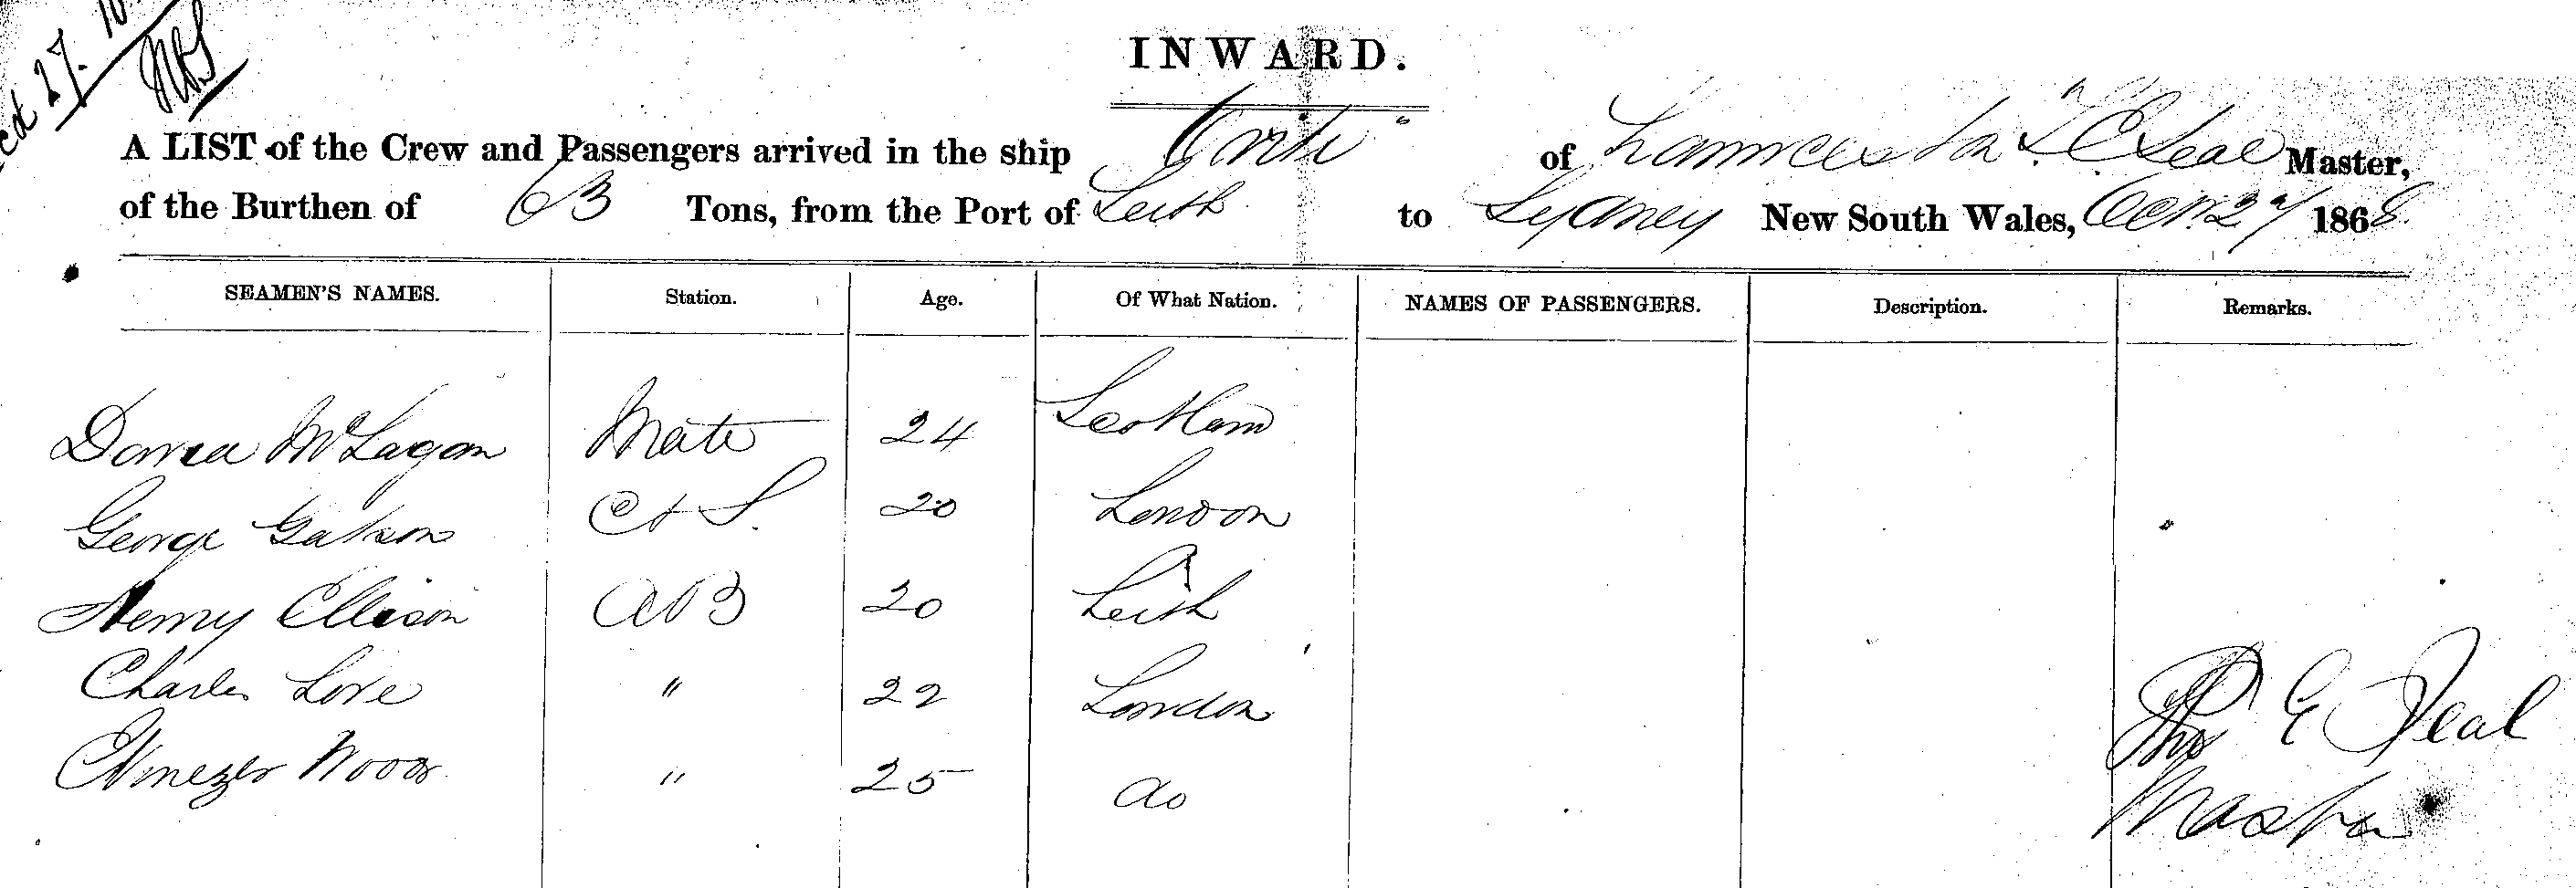 INWARD.
A LIST of the Crew and Passengers arrived in the ship of Launceston T. E Seal Master,
of the Burthen of 63 Tons, from the Port of Leith to Sydney New South Wales, Octr. 27 1868
SEAMEN'S NAMES. Station. Age. Of What Nation. NAMES OF PASSENGERS. Description. Remarks.
McLagan Mate 24 Scotland
George C & S. 20 London
Henry Ellison AB 20 Leith
Charles Love " 22 London
Ebenezer Wood " 25 do
Thos E Seal
Master